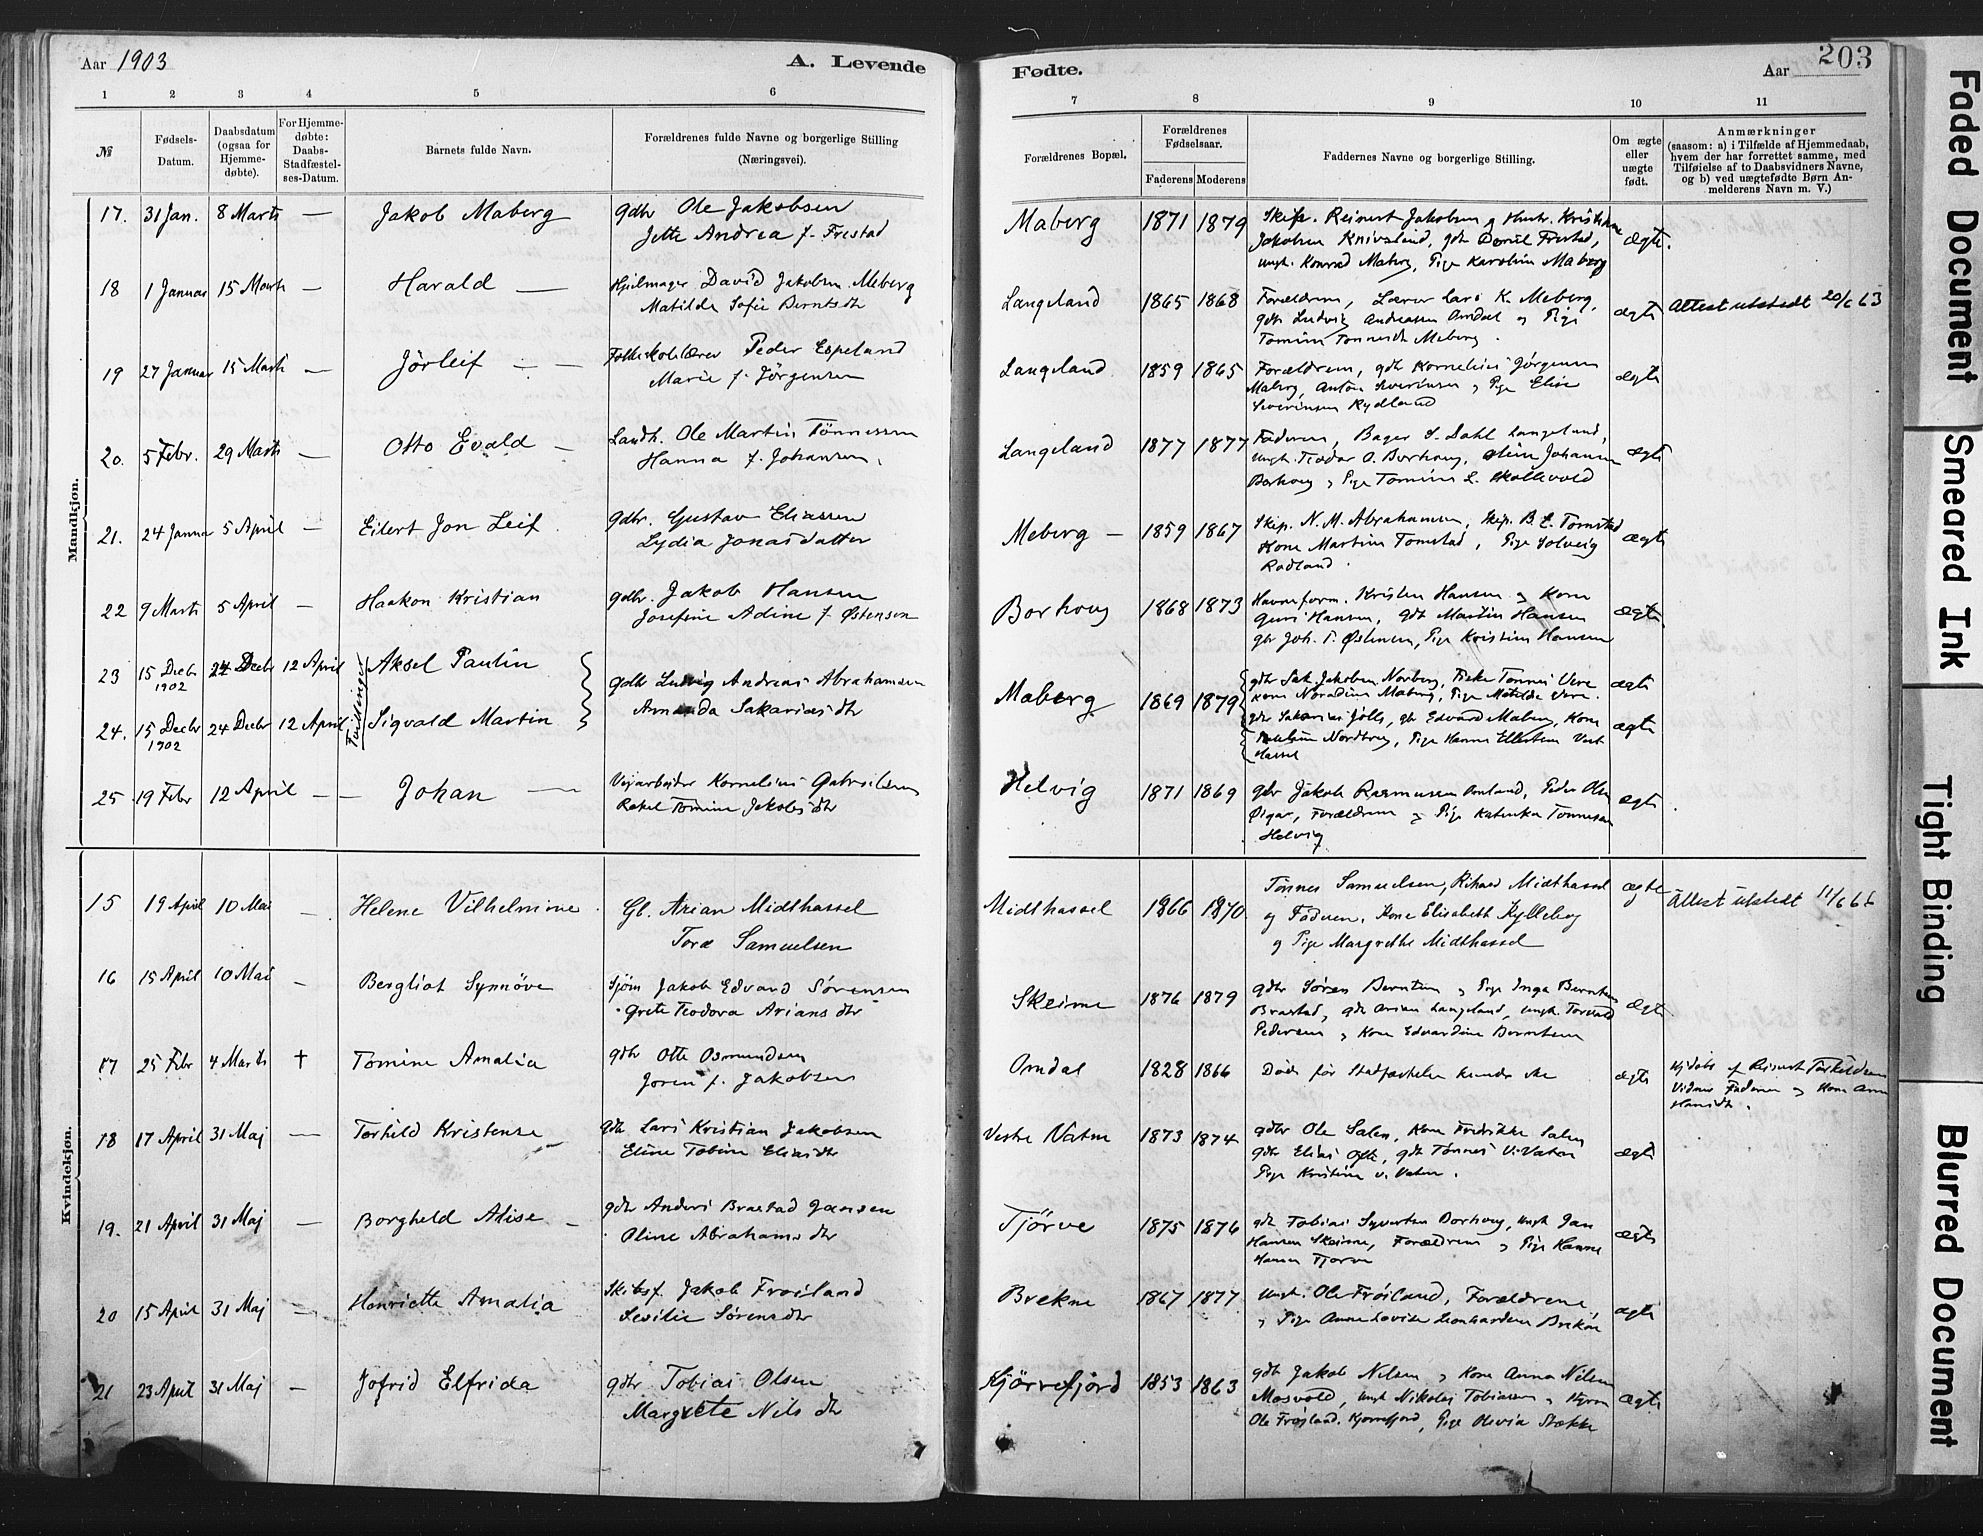 Aar 1903
A. Levende
Fødte.
Aar
203
1 2 3 4 5 6 7 8 9 10 11
№
Fødsels-
Datum.
Daabsdatum
(ogsaa for
Hjemme-
døbte).
For Hjemme-
døbte:
Daabs-
Stadfæstel-
ses-Datum.
Barnets fulde Navn.
Forældrenes fulde Navne og borgerlige Stilling
(Næringsvei).
Forældrenes Bopæl.
Forældrenes
Fødselsaar.
Faderens
Moderens
Faddernes Navne og borgerlige Stilling.
Om ægte
eller
uægte
født.
Anmærkninger
(saasom: a) i Tilfælde af Hjemmedaab,
hvem der har forrettet samme, med
Tilføielse af to Daabsvidners Navne,
og b) ved uægtefødte Børn An-
melderens Navn m. V.)
Mandkjøn.
17. 31 Jan. 8 Marts — Jakob Maberg
Gdbr Ole Jakobsen
Jette Andrea f. Frestad
Maberg 1871 1879
Skipr. Reinert Jakobsen og Hustr. Kristiane
Jakobsen Knivsland, gdbr Daniel Frestad,
ungk. Konrad Maberg, Pige Karoline Maberg
ægte.
18 1 Januar 15 Marts — Harald —
Hjulmager David Jakobsen Meberg
Matilde Sofie Berntsdtr
Langeland 1865 1868
Forældrene, Lærer Lars K. Meberg,
gdbr Ludvig Andreassen Omdal og Pige
Tomine Tønnesdtr Meberg.
ægte
Attest utstedt 20/6 63
19 27 Januar 15 Marts — Jörleif — —
Folkeskolelærer Peder Espeland
Marie f. Jörgensen
Langeland 1859 1865
Forældrene, gdbr Kornelius Jörgensen
Maberg, Anton Severinsen og Pige Elise
Severinsen Rydland
ægte
20. 5 Febr. 29 Marts — Otto Evald —
Landh. Ole Martin Tönnessen
Hanna f. Johansen.
Langeland 1877 1877
Faderen, Bager S. Dahl Langeland,
ungk. Teodor O. Borhoug, Oline Johansen
Borhoug og Pige Tomine L. Skollevold
ægte
21. 24 Januar 5 April — Eilert Jon Leif.
Gdbr. Gustav Eliassen
Lydia Jonasdatter
Meberg — 1859 1867
Skip. N. M. Abrahamsen, Skip. B. E. Tomstad
Kone Martine Tomstad, Pige Solveig
Rødland.
ægte
22 9 Marts 5 April — Haakon Kristian
gdbr. Jakob Hansen
Josefine Adine f. Østensen
Borhoug 1868 1873
Havneform. Kristen Hansen og Kone
Guri Hansen, gdbr Martin Hansen
gbr Joh. T. Østensen, Pige Kristine Hansen
ægte.
23 15 Decbr 1902 24 Decbr 12 April Aksel Paulin
24. 15 Decbr 1902 24 Decbr 12 April Sigvald Martin
Tvillinger
gdbr Ludvig Andreas Abrahamsen
Amanda Sakariasdtr
Maberg 1869 1879
gdbr Sak. Jakobsen Norberg, Fisker Tønnes Vere
kone Noradine Maberg, Pige Matilde Vere.
ægte
gdbr Sakarias Jölle, gbr Edvard Maberg, Kone
Pauline Nordberg, Pige Hanna Ellertsen Vest
Hassel
ægte
25 19 Febr 12 April — — Johan —
Veiarbeider Kornelius Gabrielsen
Rakel Tomine Jakobsdtr
Helvig 1871 1869
gbr Jakob Rasmussen Omland, Peder Olsen
Øigar, Forældrene og Pige Katinka Tønnesen
Helvig
ægte
Kvindekjøn.
15 19 April 10 Mai — Helene Vilhelmine.
Gb. Arian Midthassel
Tora Samuelsen
Midthassel 1866 1870
Tönnes Samuelsen, Rikard Midthassel
og Faderen, Kone Elisabeth Kyllebog
og Pige Margrethe Midthassel
ægte
Attest utstedt 11/6 68
16 15 April 10 Mai — Bergliot Synnöve
Sjöm Jakob Edvard Sörensen
Grete Teodora Ariansdtr
Skeime 1876 1879
gdbr Sören Berntsen og Pige Inga Berntsen
Brastad, gdbr Arian Langeland, ungk. Torvald
Pedersen og Kone Edvardine Berntsen
ægte
17 25 Febr 4 Marts † Tomine Amalia
gdbr Otte Osmundsen
Joren f. Jakobsen
Omdal 1828 1866
Döde för Stadfæstelsen kunde ske
ægte
Hjdøbt af Reinert Torkildsen
Vidner Faderen og Kone Anna
Hansdtr.
18 17 April 31 Maj — Torhild Kristense —
gdbr Lars Kristian Jakobsen
Eline Tobine Eliasdtr
Vestre Vatne 1873 1874
gdbr Ole Salen, Kone Fredrikke Salen
gdbr Elias Ofte, gdbr Tønnes V. Vatne
Pige Kristine V. Vatne.
ægte
19. 21 April 31 Maj — Borgheld Alise —
gdbr Anders Braastad Jansen
Oline Abrahamsdtr
Tjörve 1875 1876
gdb Tobias Syvertsen Borhoug, ungk Jan
Hansen Skeime, Forældrene og Pige Hanna
Hansen Tjorve
ægte
20 15 April 31 Maj — Henriette Amalia
Skibsf. Jakob Fröiland
Sesilie Sörensdtr
Brekne 1867 1877
Ungk. Ole Fröiland, Forældrene,
og Pige Anne Lovise Leonhardsen Brekne
ægte
21 23 April 31 Maj — Jofrid Elfrida
gdbr Tobias Olsen
Margrete Nilsdtr
Kjörrefjord 1853 1863
gdb Jakob Nilsen og Kone Anna Nilsen
Mosvold, ungk Nikolai Tobiassen og
Ole Fröjland. Kjorrefjord, Pige Olevia Stokke
ægte
Faded Document
Smeared Ink
Tight Binding
Blurred Document